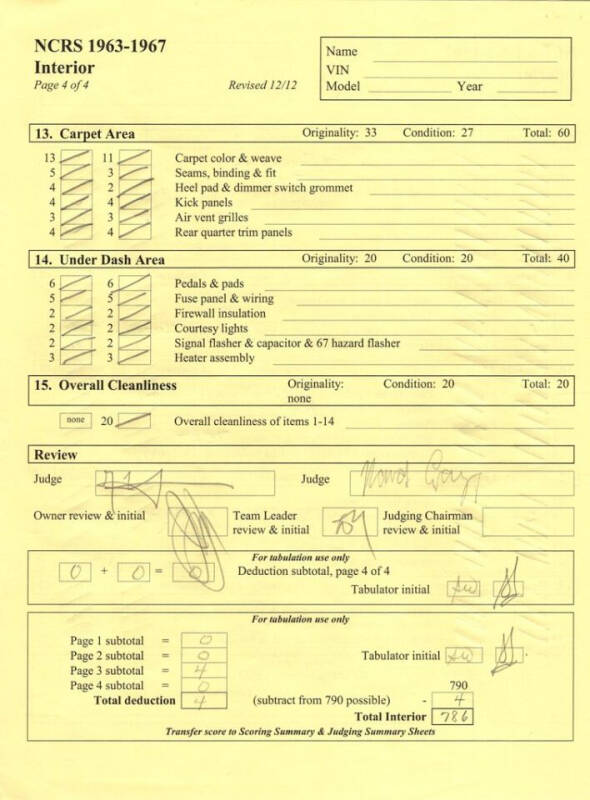 NCRS 1963-1967
Interior
Page 4 of 4 Revised 12/12
Name
VIN
Model Year
13. Carpet Area Originality: 33 Condition: 27 Total: 60
13 11 Carpet color & weave
5 3 Seams, binding & fit
4 2 Heel pad & dimmer switch grommet
4 4 Kick panels
3 3 Air vent grilles
4 4 Rear quarter trim panels
14. Under Dash Area Originality: 20 Condition: 20 Total: 40
6 6 Pedals & pads
5 5 Fuse panel & wiring
2 2 Firewall insulation
2 2 Courtesy lights
2 2 Signal flasher & capacitor & 67 hazard flasher
3 3 Heater assembly
15. Overall Cleanliness Originality: none Condition: 20 Total: 20
none 20 Overall cleanliness of items 1-14
Review
Judge Judge
Owner review & initial Team Leader review & initial Judging Chairman review & initial
For tabulation use only
0 + 0 = 0 Deduction subtotal, page 4 of 4
Tabulator initial
For tabulation use only
Page 1 subtotal = 0
Page 2 subtotal = 0 Tabulator initial
Page 3 subtotal = 4
Page 4 subtotal = 0 790
Total deduction 4 (subtract from 790 possible) - 4
Total Interior 786
Transfer score to Scoring Summary & Judging Summary Sheets